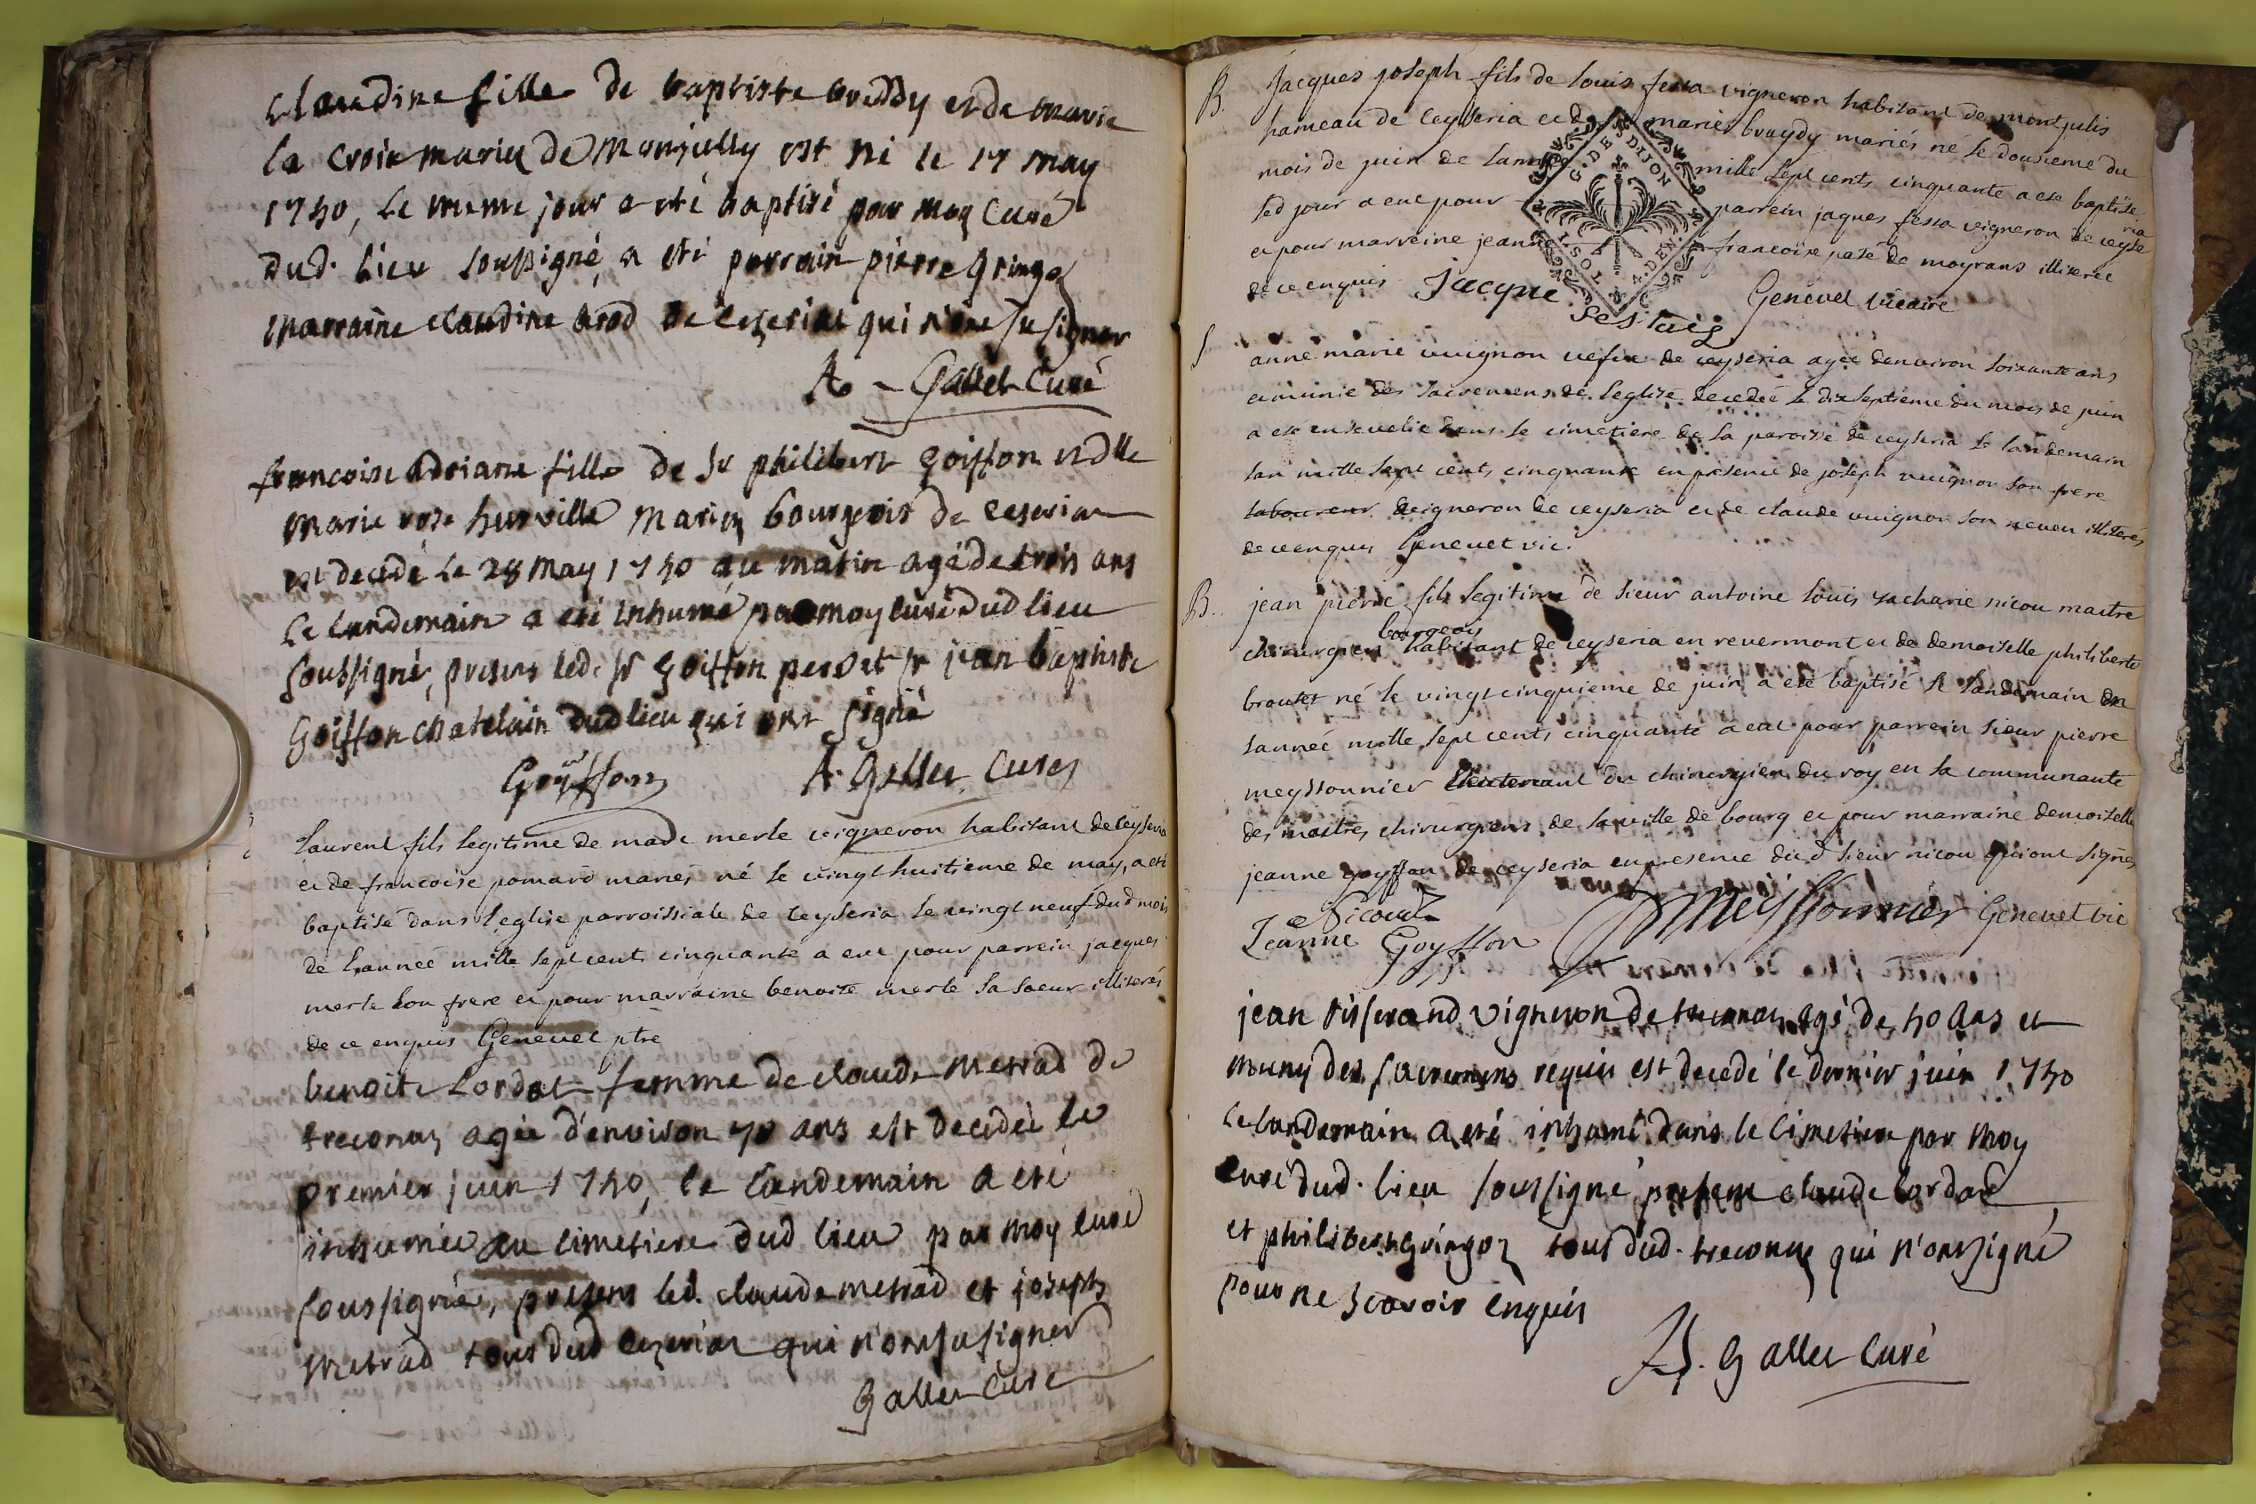 claudine fille de baptiste breddy et de marie
la croix mariez de Monjully est né le 17 may
1750, le meme jour a eté baptisé par moy Curé
dud. lieu soussigné, a eté parrain pierre gringoz
marraine claudine brod de cezeriat qui n'ont su signer
A. Gallet Curé
francoise adriane fille de Sr philibert Goiffon et dlle
marie rose hurville mariez bourgeois de ceseriat
est decedé le 28 may 1750 au matin agé de trois ans
le landemain a eté inhumé par moy curé dud lieu
soussigné, presens led. Sr Goiffon pere et Sr jean baptiste
Goiffon chatelain dud lieu qui ont signé
Goÿffon A. Gallet Curé
Laurent fils legitime de made merle vigneron habitant de ceyseria
et de francoise pomard mariés né le vingt huitieme de may, a eté
baptisé dans l'eglise parroissiale de ceyseria le vingt neuf dud mois
de l'année mille sept cents cinquante a eut pour parrein jacques
merle son frere et pour marraine benoite merle sa soeur illiterés
de ce enquis Genevet ptre
benoite Lordat femme de claude metrad de
treconaz agée d'environ 70 ans est decedeé le
premier juin 1750, le landemain a eté
inhumée au cimetiere dud lieu par moy curé
soussigné, presens led. claude metrad et joseph
metrad tous dud cezeriat qui n'ont su signer
Gallet Curé
B. Jacques joseph fils de louis fessa vigneron habitant de montjulis
hameau de Ceyseria et de marie breydy mariés né le dousieme du
mois de juin de l'année mille sept cents cinquante a eté baptisé
led jour a eut pour parrein jaques fessa vigneron de ceyseria
et pour marreine jeanne francoise paté de moyrans illiteree
de ce enquis Jacque Genevet vicaire
G. DE DIJON
S anne marie vuignon vefve de ceyseria agée denviron soixante ans
et munie des sacremens de l'eglise decedée le dix septieme du mois de juin
a eté ensevelie dans le cimetiere de la paroisse de ceyseria le landemain
lan mille sept cents cinquante en presence de joseph vuignon son frere
laboureur vigneron de ceyseria et de claude vuignon son neveu illiterés
de ce enquis Genevet vic.
B. jean pierre fils legitime de sieur antoine louis zacharie nicou maitre
bourgeois
chirurgien habitant de ceyseria en revermont et de demoiselle philiberte
broutet né le vingt cinquieme de juin a eté baptisé le landemain de
lanneé mille sept cents cinquante a eut pour parrein sieur pierre
meyssonnier lieutenant du chirurgien du roy en la communauté
des maitres chirurgiens de la ville de bourg et pour marraine demoiselle
jeanne goyffon de ceyseria en presence dud sieur nicou qui ont signes
Nicou Meyssonnier Genevet vic
Jeanne Goyffon
jean tisserand vigneron de treconas agé de 50 ans et
muny des sacremens requis est decedé le dernier juin 1750
le landemain a eté inhumé dans le cimetiere par moy
curé dud. lieu soussigné present claude lordat
et philibert gringoz tous dud. treconaz qui n'ont signé
pour ne scavoir enquis
A. Gallet Curé